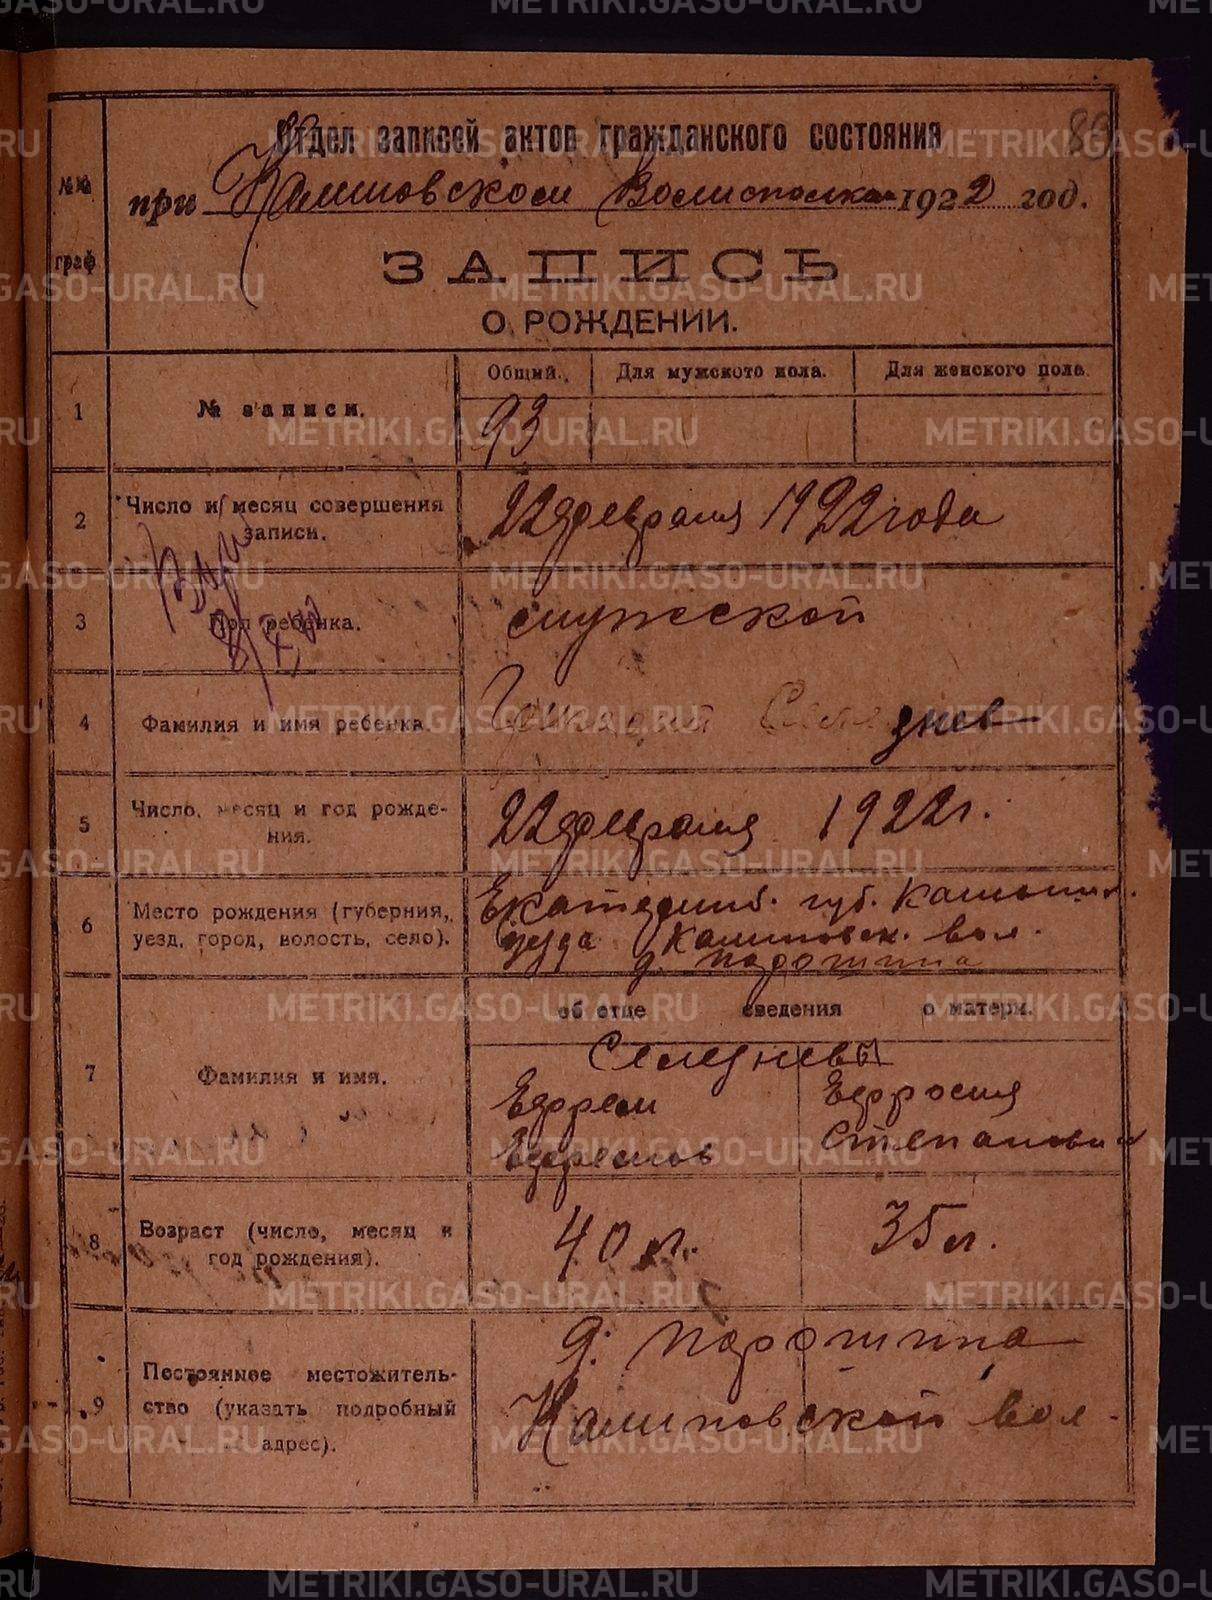 Отдел записей актов гражданского состояния
при Калиновском Волисполкоме 1922 год.
№№
граф
ЗАПИСЬ
О РОЖДЕНИИ.
Общий. Для мужского пола. Для женского пола.
1 № записи. 93
2 Число и месяц совершения записи. 22 февраля 1922 года
3 Пол ребенка. мужской
4 Фамилия и имя ребенка. Селезнев
5 Число, месяц и год рождения. 22 февраля 1922 г.
6 Место рождения (губерния, Екатеринб. губ. Камышл.
уезд, город, волость, село). уезда Калиновск. вол.
д. Порошина
об отце сведения о матери.
Селезневы
7 Фамилия и имя. Ефрем Ефросия
Ефремов Степанов
8 Возраст (число, месяц и год рождения). 40 л. 35 л.
9 Постоянное местожитель- д. Порошина
ство (указать подробный Калиновской вол.
адрес).
METRIKI.GASO-URAL.RU